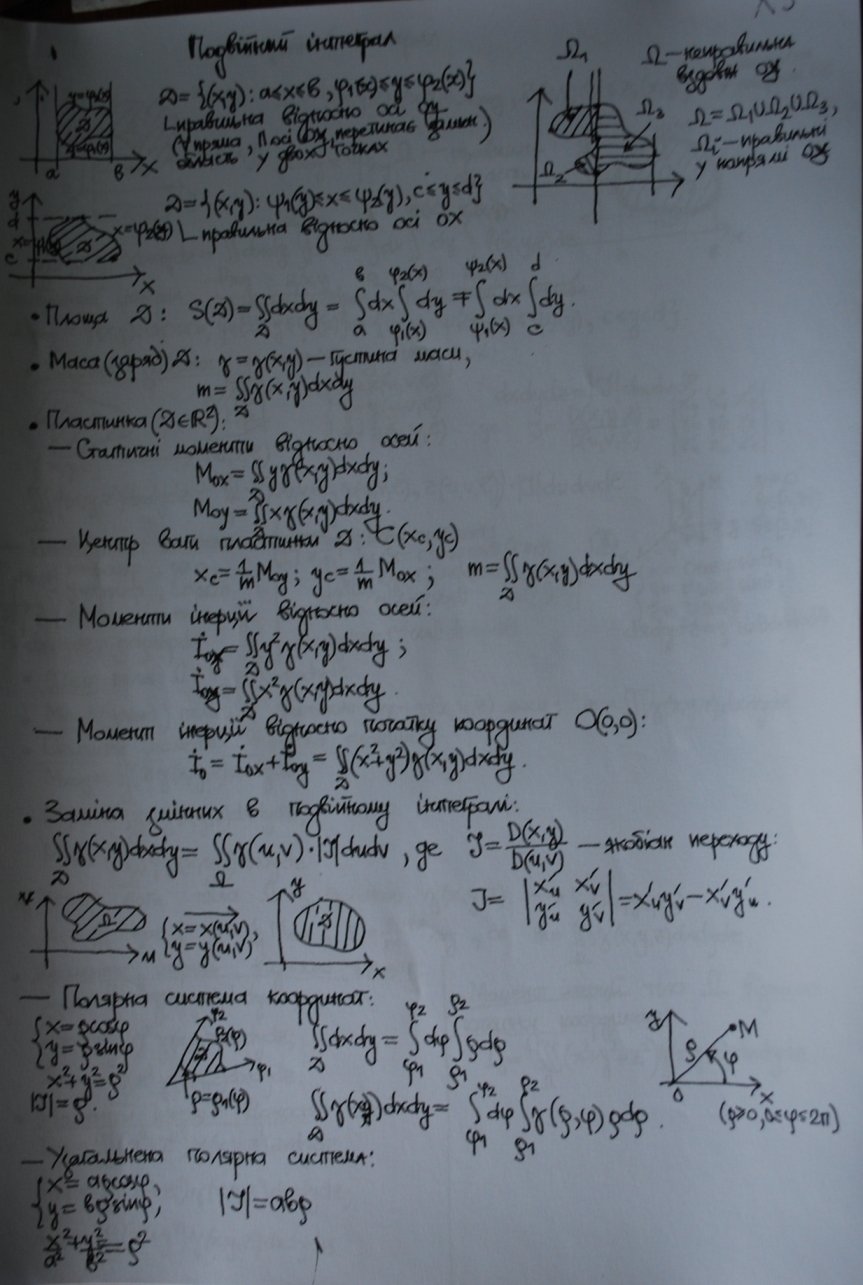 Подвійний інтеграл
D = {(x,y): a≤x≤b, φ₁(x)≤y≤φ₂(x)}
правильна відносно осі OY
(∀ пряма, ∥ осі OY, перетинає
область у двох точках
y=φ₂(x)
D
y=φ₁(x)
a b x
Ω₁
Ω₂
Ω₃
Ω – неправильна
вздовж OY.
Ω = Ω₁∪Ω₂∪Ω₃,
Ωᵢ – правильні
у напрямі OY
D = {(x,y): ψ₁(y)≤x≤ψ₂(y), c≤y≤d}
правильна відносно осі OX
y
d
x=ψ₂(y)
D
c
x
• Площа D: S(D) = ∬_D dxdy = ∫_a^b dx ∫_{φ₁(x)}^{φ₂(x)} dy = ∫_{ψ₁(x)}^{ψ₂(x)} dx ∫_c^d dy.
• Маса (заряд) D: γ = γ(x,y) – густина маси,
m = ∬_D γ(x,y)dxdy
• Пластинка (D∈ℝ²):
— Статичні моменти відносно осей:
M_ox = ∬_D yγ(x,y)dxdy;
M_oy = ∬_D xγ(x,y)dxdy.
— Центр ваги пластинки D: C(x_c, y_c)
x_c = 1/m M_oy; y_c = 1/m M_ox; m = ∬_D γ(x,y)dxdy
— Моменти інерції відносно осей:
I_ox = ∬_D y²γ(x,y)dxdy;
I_oy = ∬_D x²γ(x,y)dxdy.
— Момент інерції відносно початку координат O(0,0):
I₀ = I_ox + I_oy = ∬_D (x²+y²)γ(x,y)dxdy.
• Заміна змінних в подвійному інтегралі:
∬_D γ(x,y)dxdy = ∬_Ω γ(u,v)·|J|dudv, де J = D(x,y)/D(u,v) — якобіан переходу:
J = |x'u x'v; y'u y'v| = x'u y'v − x'v y'u.
v
Ω
u
{x=x(u,v),
y=y(u,v)
y
D
x
— Полярна система координат:
{x=ρcosφ
y=ρsinφ
x²+y²=ρ²
|J|=ρ.
φ₂
ρ₂(φ)
D
φ₁
ρ=ρ₁(φ)
∬_D dxdy = ∫_{φ₁}^{φ₂} dφ ∫_{ρ₁}^{ρ₂} ρdρ
∬_D γ(x,y)dxdy = ∫_{φ₁}^{φ₂} dφ ∫_{ρ₁}^{ρ₂} γ(ρ,φ)ρdρ.
y
M
ρ
φ
0 x
(ρ≥0, 0≤φ≤2π)
— Узагальнена полярна система:
{x=aρcosφ,
y=bρsinφ,
|J|=abρ
x²/a² + y²/b² = ρ²